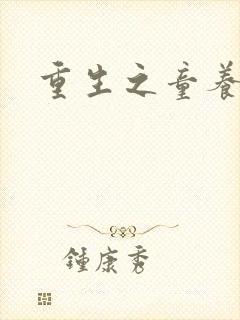 重生之童養
鍾康秀